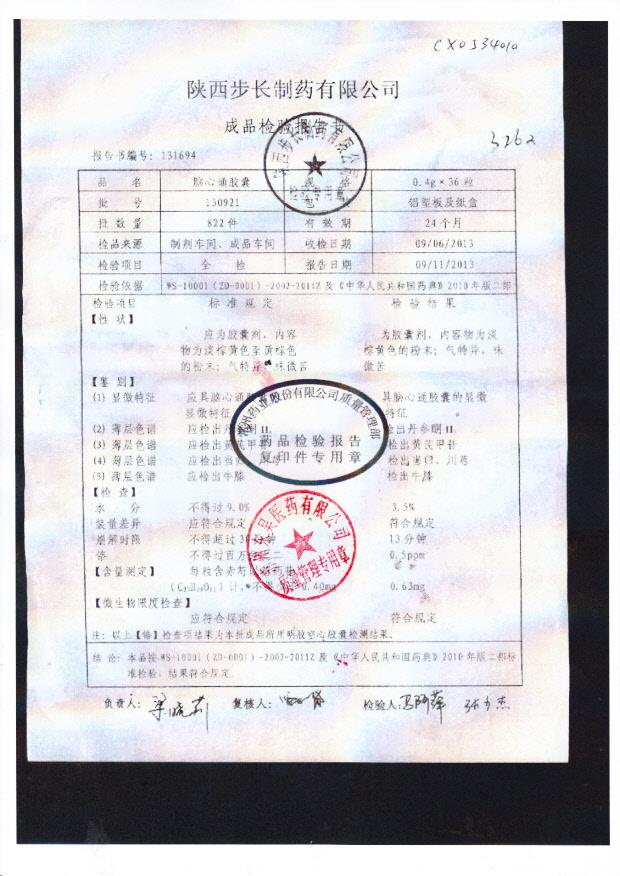 CX0534010
陕西步长制药有限公司
成品检验报告书
3262
报告书编号：131694
品 名 脑心通胶囊 0.4g×36粒
批 号 130921 包 铝塑板及纸盒
批数量 822件 有效期 24个月
检品来源 制剂车间、成品车间 收检日期 09/06/2013
检验项目 全 检 报告日期 09/11/2013
检验依据 WS-10001（ZD-0001）-2002-2011Z及《中华人民共和国药典》2010年版二部
检验项目 标准规定 检验结果
【性 状】
应为胶囊剂，内容 为胶囊剂，内容物为淡
物为淡棕黄色至黄棕色 棕黄色的粉末；气特异，味
的粉末；气特异，味微苦 微苦
【鉴 别】
(1) 显微特征 应具脑心通胶 具脑心通胶囊的显微
显微特征 特征
(2) 薄层色谱 应检出丹 检出丹参酮II
(3) 薄层色谱 应检出黄芪甲 检出黄芪甲苷
(4) 薄层色谱 应检出当 检出当归、川芎
(5) 薄层色谱 应检出牛膝 检出牛膝
药品检验报告
复印件专用章
【检 查】
水 分 不得过9.0% 3.5%
装量差异 应符合规定 符合规定
崩解时限 不得超过30 钟 13分钟
铬 不得过百万 二 0.5ppm
【含量测定】 每粒含赤芍
计，不得 0.40mg 0.63mg
【微生物限度检查】
应符合规定 符合规定
注：以上【铬】检查项结果为本批成品所用明胶空心胶囊检测结果。
结 论：本品按WS-10001（ZD-0001）-2002-2011Z及《中华人民共和国药典》2010年版二部标
准检验，结果符合规定。
质量管理专用章
负责人： 复核人： 检验人：